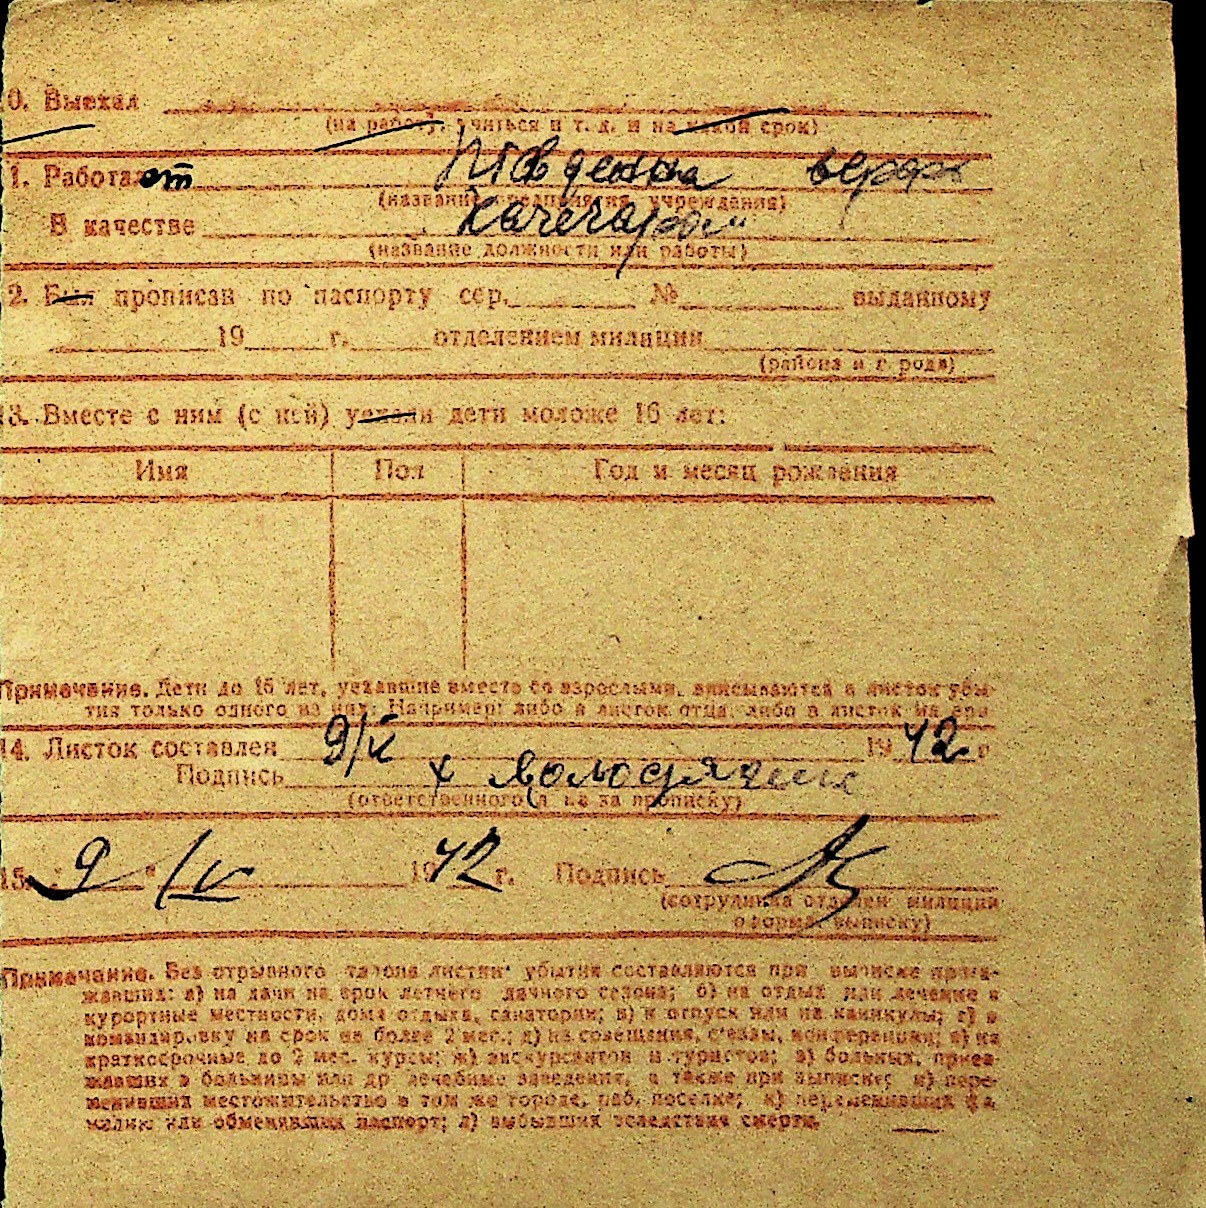 0. Выехал
(на работу, учиться и т. д. и на какой срок)
1. Работает верфь
(название предприятия, учреждения)
В качестве качегаром
(название должности или работы)
2. Был прописан по паспорту сер. № выданному
19 г. отделением милиции
(района и города)
13. Вместе с ним (с ней) уехали дети моложе 16 лет:
Имя Пол Год и месяц рождения
Примечание. Дети до 16 лет, уехавшие вместе со взрослыми, вписываются в листок убы-
тия только одного из них: Например: либо в листок отца, либо в листок матери
14. Листок составлен 9/IV 1942 г
Подпись х
(ответственного за прописку)
15. 9 /IV 1942 г. Подпись
(сотрудника отделен. милиции
оформ. выписку)
Примечание. Без отрывного талона листки убытия составляются при выписке приез-
жавших: а) на дачи на срок летнего дачного сезона; б) на отдых или лечение в
курортные местности, дома отдыха, санатории; в) в отпуск или на каникулы; г) в
командировку на срок не более 2 мес.; д) на совещания, съезды, конференции; е) на
краткосрочные до 2 мес. курсы; ж) экскурсантов и туристов; з) больных, приез-
жавших в больницы или др лечебные заведения, а также при выписке; и) пере-
менивших местожительство в том же городе, раб. поселке; к) переменивших фа-
милию или обменявших паспорт; л) выбывших вследствие смерти.